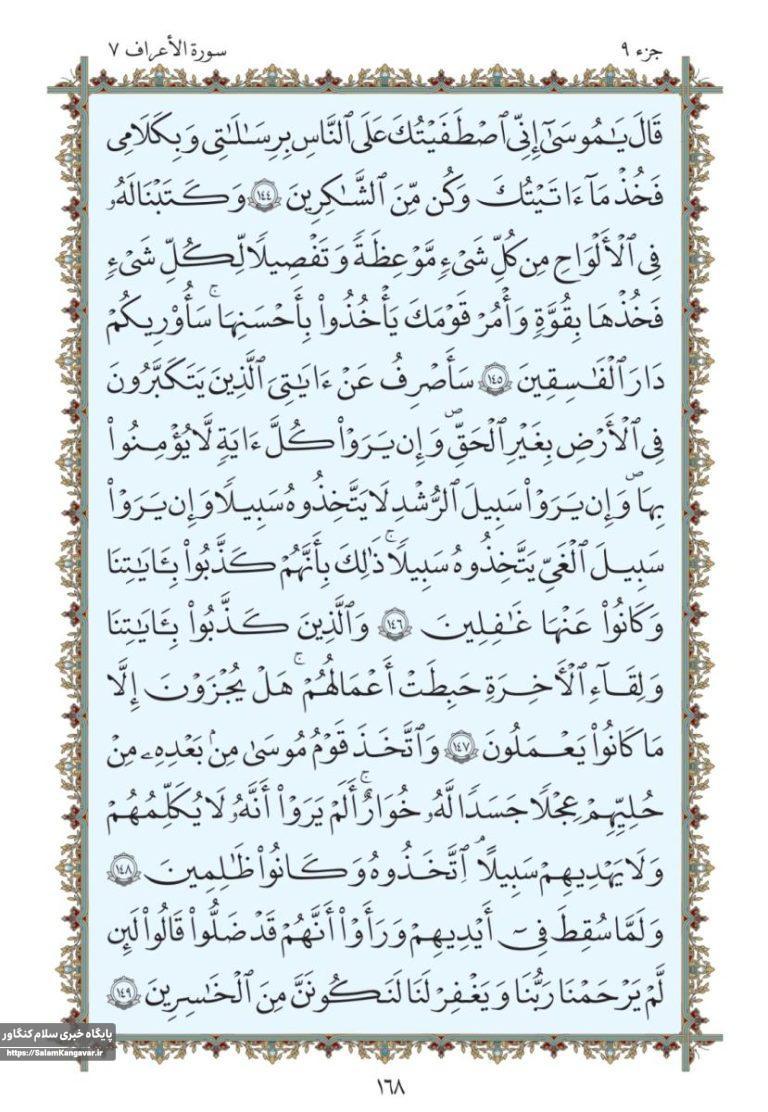 جزء ۹
سورة الأعراف ۷
قَالَ يَـٰمُوسَىٰٓ إِنِّى ٱصْطَفَيْتُكَ عَلَى ٱلنَّاسِ بِرِسَـٰلَـٰتِى وَبِكَلَـٰمِى
فَخُذْ مَآ ءَاتَيْتُكَ وَكُن مِّنَ ٱلشَّـٰكِرِينَ ١٤٤ وَكَتَبْنَا لَهُۥ
فِى ٱلْأَلْوَاحِ مِن كُلِّ شَىْءٍ مَّوْعِظَةً وَتَفْصِيلًا لِّكُلِّ شَىْءٍ
فَخُذْهَا بِقُوَّةٍ وَأْمُرْ قَوْمَكَ يَأْخُذُوا۟ بِأَحْسَنِهَا ۚ سَأُو۟رِيكُمْ
دَارَ ٱلْفَـٰسِقِينَ ١٤٥ سَأَصْرِفُ عَنْ ءَايَـٰتِىَ ٱلَّذِينَ يَتَكَبَّرُونَ
فِى ٱلْأَرْضِ بِغَيْرِ ٱلْحَقِّ ۖ وَإِن يَرَوْا۟ كُلَّ ءَايَةٍ لَّا يُؤْمِنُوا۟
بِهَا ۖ وَإِن يَرَوْا۟ سَبِيلَ ٱلرُّشْدِ لَا يَتَّخِذُوهُ سَبِيلًا وَإِن يَرَوْا۟
سَبِيلَ ٱلْغَىِّ يَتَّخِذُوهُ سَبِيلًا ۚ ذَٰلِكَ بِأَنَّهُمْ كَذَّبُوا۟ بِـَٔايَـٰتِنَا
وَكَانُوا۟ عَنْهَا غَـٰفِلِينَ ١٤٦ وَٱلَّذِينَ كَذَّبُوا۟ بِـَٔايَـٰتِنَا
وَلِقَآءِ ٱلْـَٔاخِرَةِ حَبِطَتْ أَعْمَـٰلُهُمْ ۚ هَلْ يُجْزَوْنَ إِلَّا
مَا كَانُوا۟ يَعْمَلُونَ ١٤٧ وَٱتَّخَذَ قَوْمُ مُوسَىٰ مِنۢ بَعْدِهِۦ مِنْ
حُلِيِّهِمْ عِجْلًا جَسَدًا لَّهُۥ خُوَارٌ ۚ أَلَمْ يَرَوْا۟ أَنَّهُۥ لَا يُكَلِّمُهُمْ
وَلَا يَهْدِيهِمْ سَبِيلًا ۘ ٱتَّخَذُوهُ وَكَانُوا۟ ظَـٰلِمِينَ ١٤٨
وَلَمَّا سُقِطَ فِىٓ أَيْدِيهِمْ وَرَأَوْا۟ أَنَّهُمْ قَدْ ضَلُّوا۟ قَالُوا۟ لَئِن
لَّمْ يَرْحَمْنَا رَبُّنَا وَيَغْفِرْ لَنَا لَنَكُونَنَّ مِنَ ٱلْخَـٰسِرِينَ ١٤٩
پایگاه خبری سلام کنگاور
https://SalamKangavar.ir
١٦٨